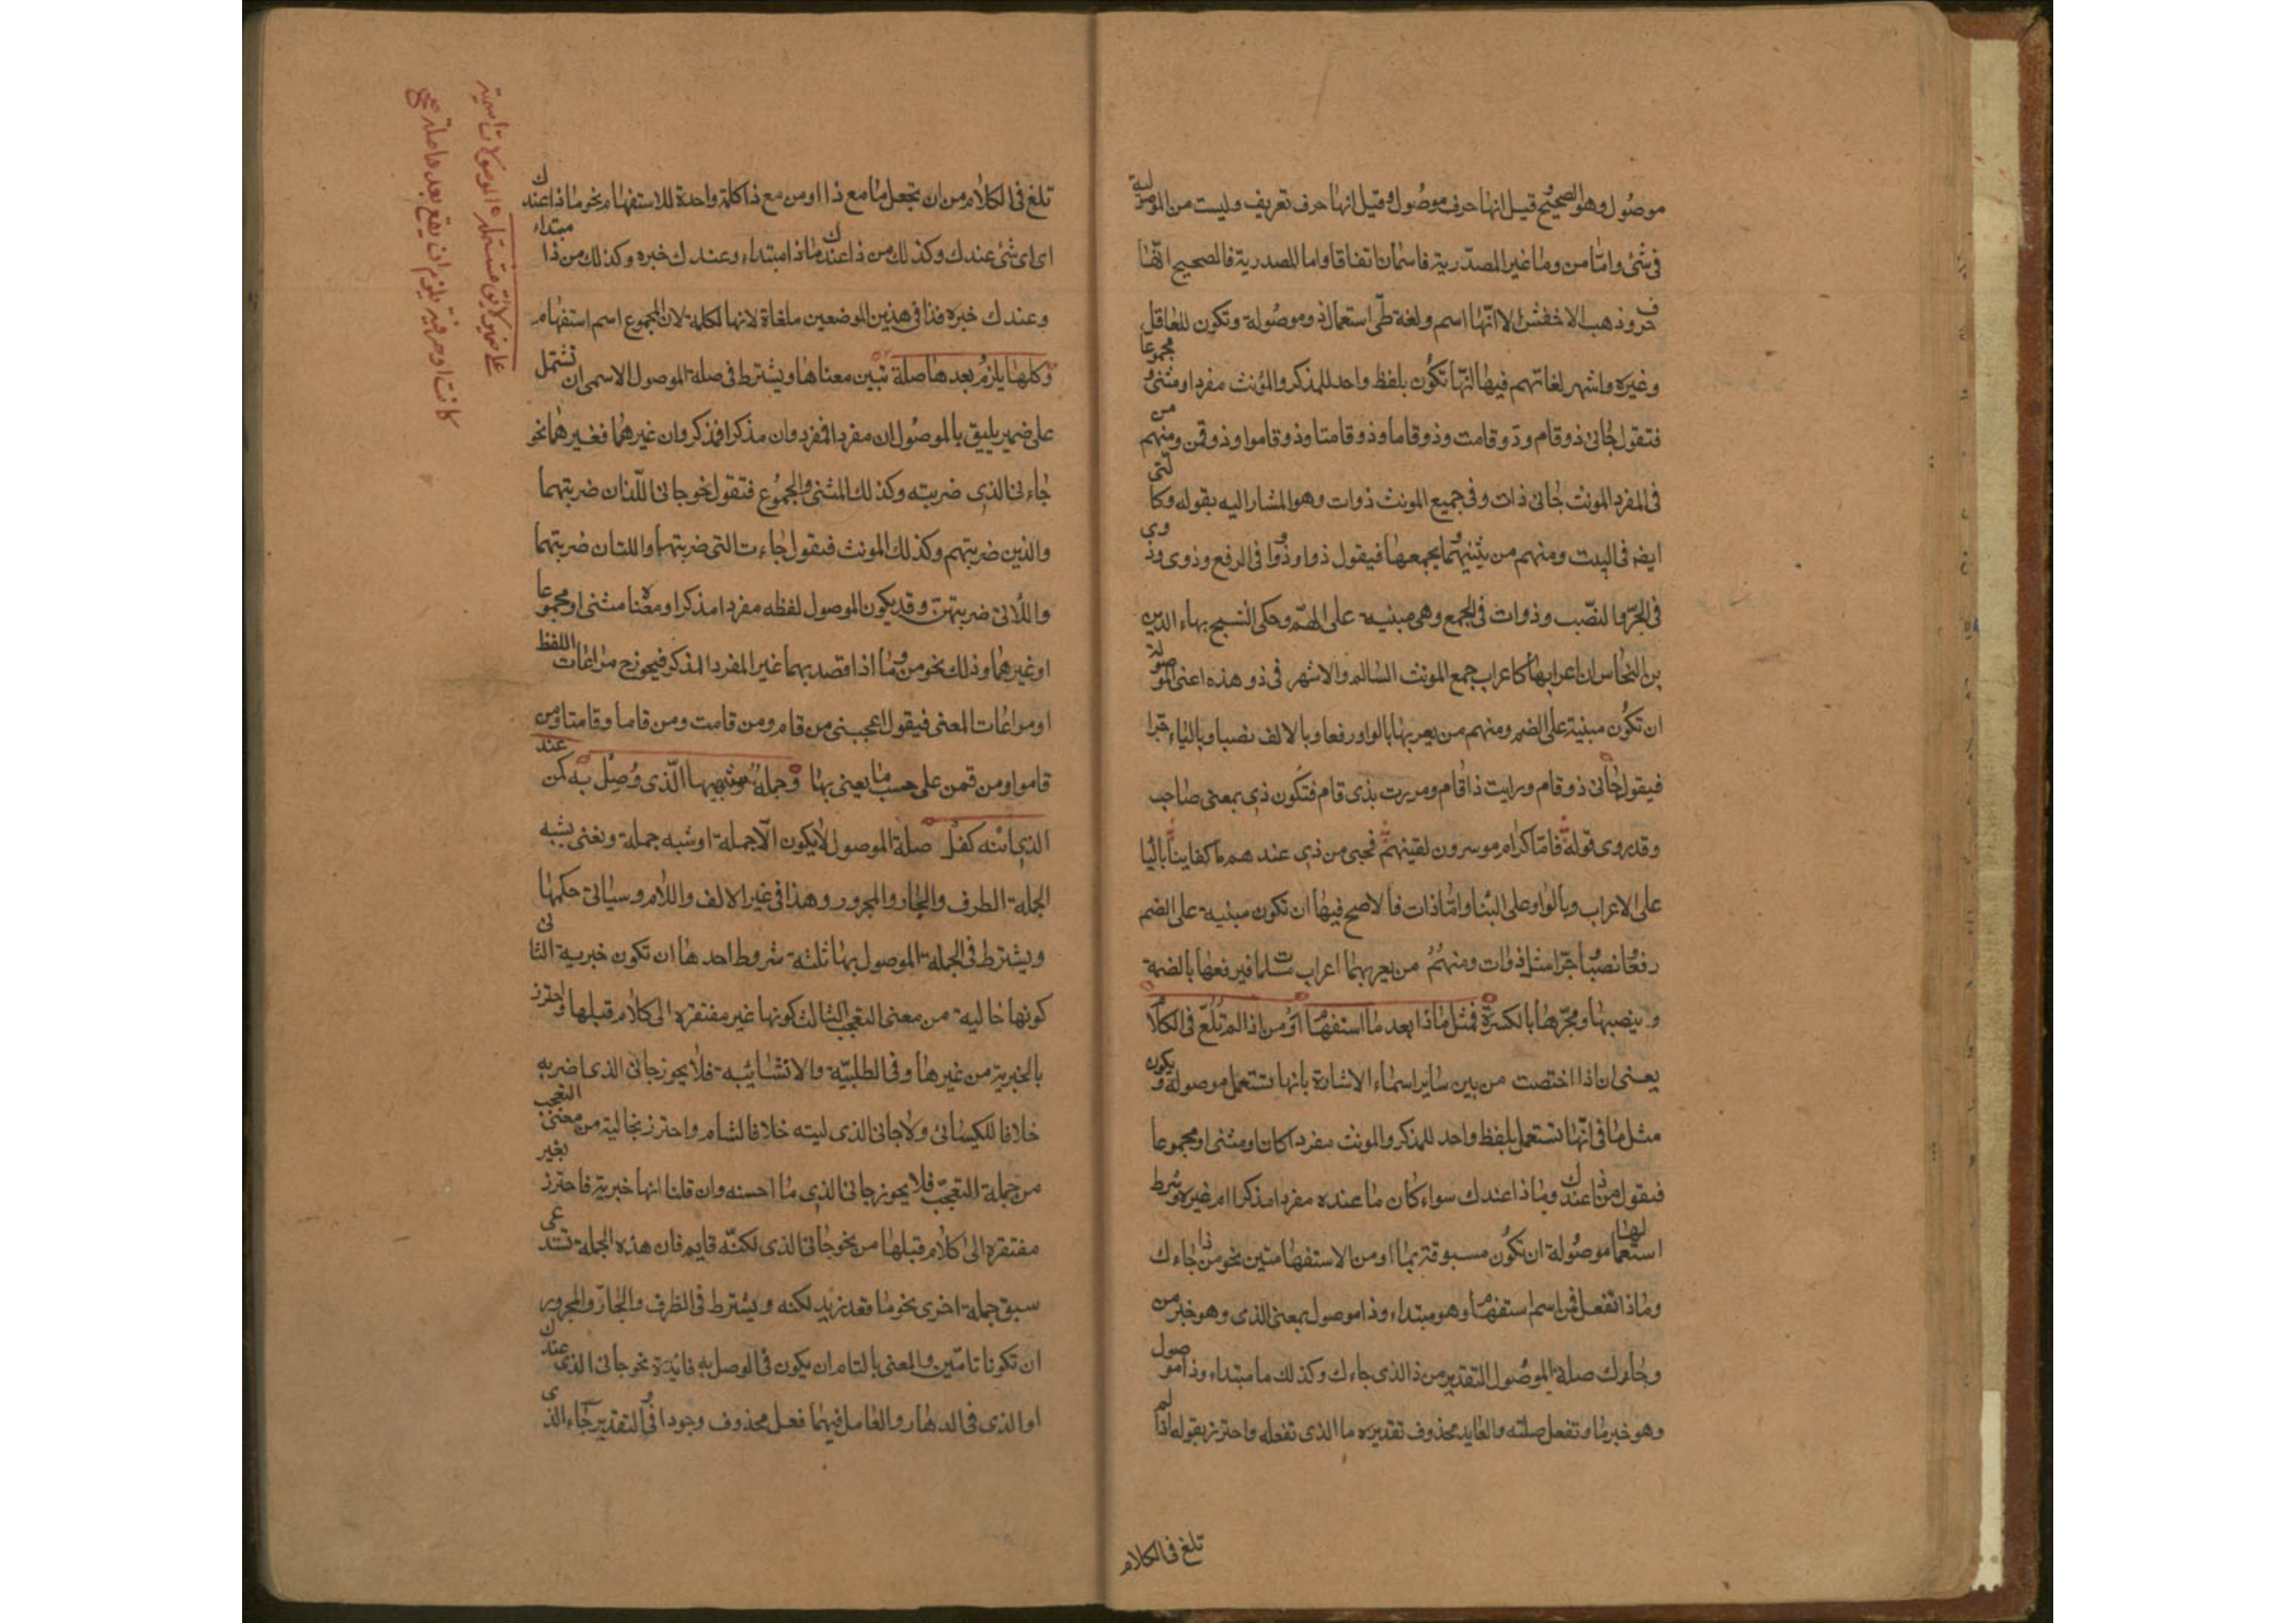 موصول وهو الصحيح وقيل انها حرف موصول وقيل انها حرف تعريف وليست من الموصولية
فى شئ وامّا من وما غير المصدّرية فاسمان اتفاقا واما المصدرية فالصحيح انّها
حرف وذهب الاخفش الا انّها اسم ولغة طى استعمال ذو موصولة وتكون للعاقل
وغيره واشهر لغاتهم فيها انّها تكون بلفظ واحد للمذكر والمؤنث مفردا ومثنى ومجموعا
فتقول جانى ذو قام وذو قامت وذو قاما وذو قامتا وذو قاموا وذو قمن ومنهم من
فى المفرد المونث جانى ذات وفى جميع المونث ذوات وهو المشار اليه بقوله وكالّتى
ايضه فى البيت ومنهم من يثنيهما ويجمعها فيقول ذوا وذووا فى الرفع وذوى وذوى
فى الجرّ والنصّب وذوات فى الجمع وهى مبنية على الضمّ وحكى الشيخ بهاء الدين
بن النحاس ان اعرابها كاعراب جمع المونث السالم والاشهر فى ذو هذه اعنى الموصولة
ان تكون مبنية على الضم ومنهم من يعربها بالواو رفعا وبالالف نصبا وبالياء جرا
فيقول جانى ذو قام ورايت ذا قام ومررت بذى قام فتكون ذى بمعنى صاحب
وقد روى قوله فامّا كرام موسرون لقيتهم فحبى من ذى عندهم ما كفاينا باليا
على الاعراب وبالواو على البنا وامّا ذات فالاصح فيها ان تكون مبنية على الضم
رفعا ونصبا وجرّا مثل ذوات ومنهم من يعربهما اعراب مسلمات فيرفعها بالضمة
وينصبها ومجرّها بالكسرة فمثل ماذا بعد ما استفهام او من اذا لم تلغ فى الكلام
يعنى ان ذا اختصت من بين ساير اسماء الاشارة بانها تستعمل موصولة ويكون
مثل ما فى انّها تستعمل بلفظ واحد للمذكر والمونث مفردا كان او مثنى او مجموعا
فيقول من ذا عندك وماذا عندك سواء كان ما عنده مفردا مذكرا ام غيره وشرط
استعمالها موصولة ان تكون مسبوقة بما او من الاستفهامتين نحو من ذا جاءك
وماذا تفعل فمن اسم استفهام وهو مبتداء وذا موصول بمعنى الذى وهو خبر من
وجاءك صلة الموصول التقدير من ذا الذى جاءك وكذلك ما مبتداء وذا موصول
وهو خبر ما وتفعل صلته والعايد محذوف تقديره ما الذى تفعله واحترز بقوله اذا لم
تلغ فى الكلام
تلغ فى الكلام من ان تجعل ما مع ذا او من مع ذا كلمة واحدة للاستفهام نحو ماذا عندك
اى اى شئ عندك وكذلك من ذا عندك ماذا مبتداء وعندك خبره وكذلك من ذا مبتداء
وعندك خبره فذا فى هذين الموضعين ملغاة لانها لكلمة لان المجموع اسم استفهام
وكلها يلزم بعدها صلة تبين معناها ويشترط فى صلة الموصول الاسمى ان تشتمل
على ضمير يليق بالموصول ان مفردا فمفرد وان مذكرا فمذكر وان غيرهما فغيرهما نحو
جاءنى الذى ضربته وكذلك المثنى والمجموع فتقول نحو جانى اللّذان ضربتهما
والذين ضربتهم وكذلك المونث فيقول جاءت التى ضربتها واللتان ضربتهما
واللّاتى ضربتهنّ وقد يكون الموصول لفظه مفردا مذكرا ومعناه مثنى او مجموعا
او غيرهما وذلك نحو من وما اذا قصد بهما غير المفرد المذكر فيجوزح مراعات اللفظ
او مراعات المعنى فيقول اعجبنى من قام ومن قامت ومن قاما وقامتا ومن
قاموا ومن قمن على حسب ما يعنى بها وجملة او شبهها الّذى وصل به كمن عند
الذى ابنه كفل صلة الموصول لا يكون الّا جملة او شبه جملة ونعنى بشبه
الجملة الظرف والجار والمجرور وهذا فى غير الالف واللام وسياتى حكمها
ويشترط فى الجملة الموصول بها ثلثة شروط احدها ان تكون خبرية الثانى
كونها خالية من معنى التعجب الثالث كونها غير مفتقرة الى كلام قبلها واحترز
بالخبرية من غيرها وفى الطلبيّة والانشائيه فلا يجوز جانى الذى اضربه
خلافا للكيسائى ولا جانى الذى ليته خلافا لشام واحترز بخالية من معنى التعجب
من جملة التعجّب فلا يجوز جانى الذى ما احسنه وان قلنا انها خبرية فاحترز بغير
مفتقرة الى كلام قبلها من نحو جانى الذى لكنّه قايم فان هذه الجملة تستدعى
سبق جملة اخرى نحو ما قعد زيد لكنه ويشترط فى الظرف والجارّ والمجرور
ان تكونا تامّين والمعنى بالتام ان يكون فى الوصل به فايدة نحو جانى الذى عندك
او الذى فى الدهار والعامل فيهما فعل محذوف وجودا والتقدير جاء الذى